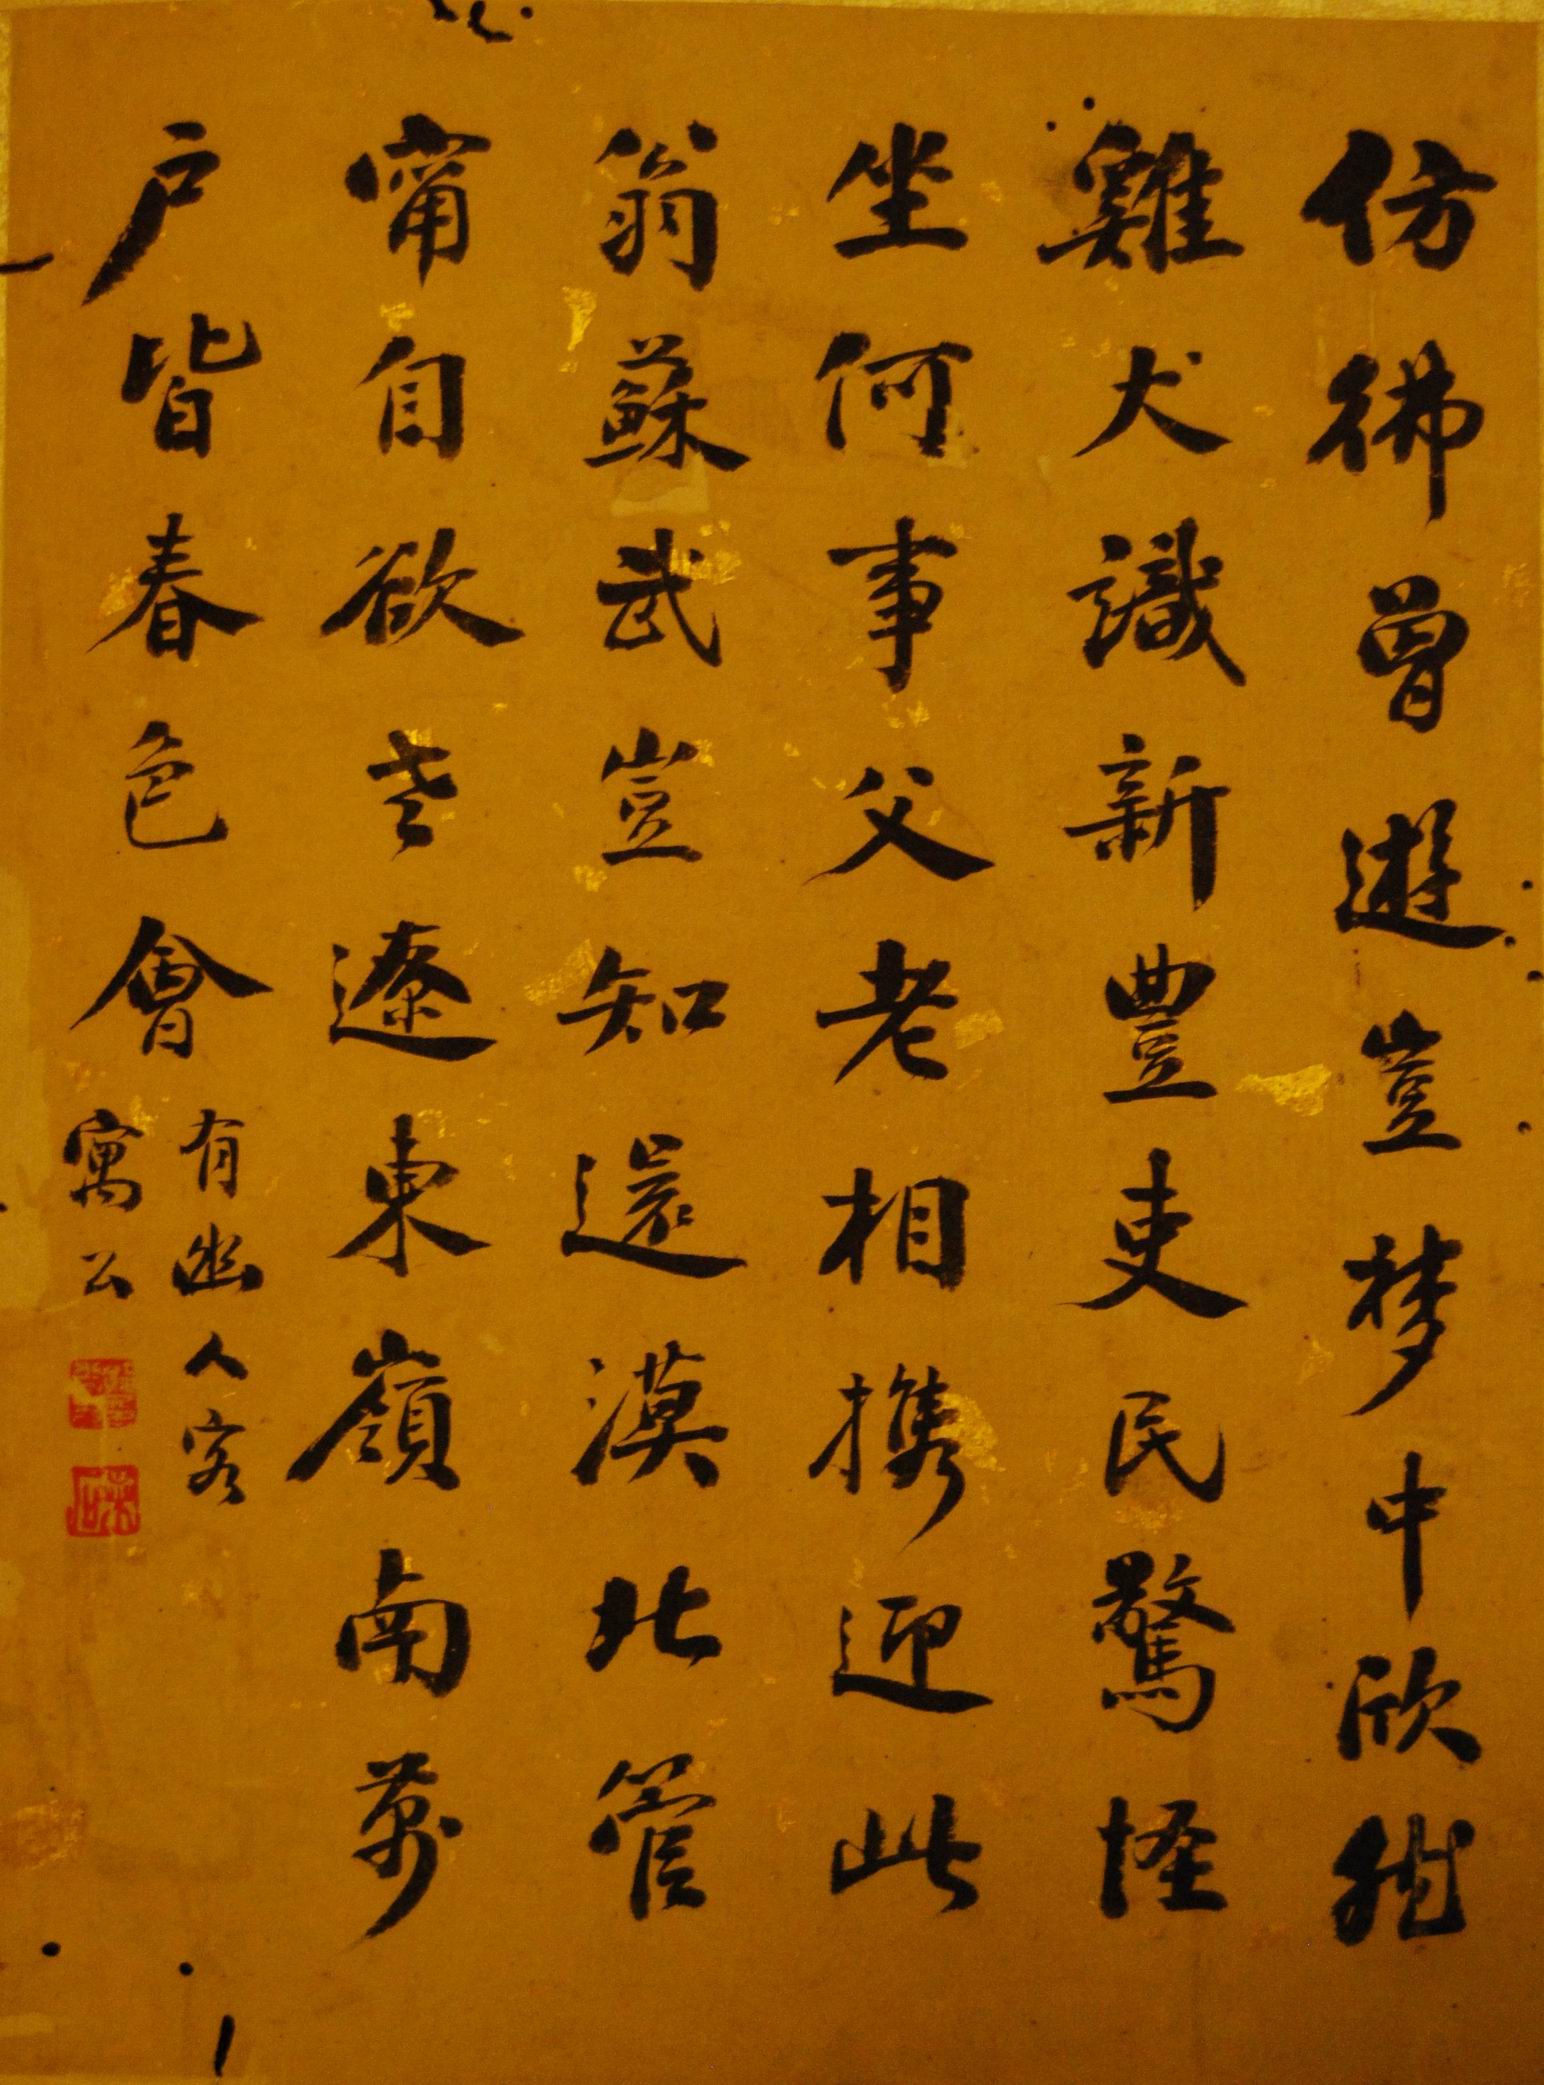 仿彿曾遊豈梦中欣然
雞犬識新豐吏民驚怪
坐何事父老相攜迎此
翁蘇武豈知還漠北管
甯自欲老遼東嶺南萬
戶皆春色會
有幽人客
寓公